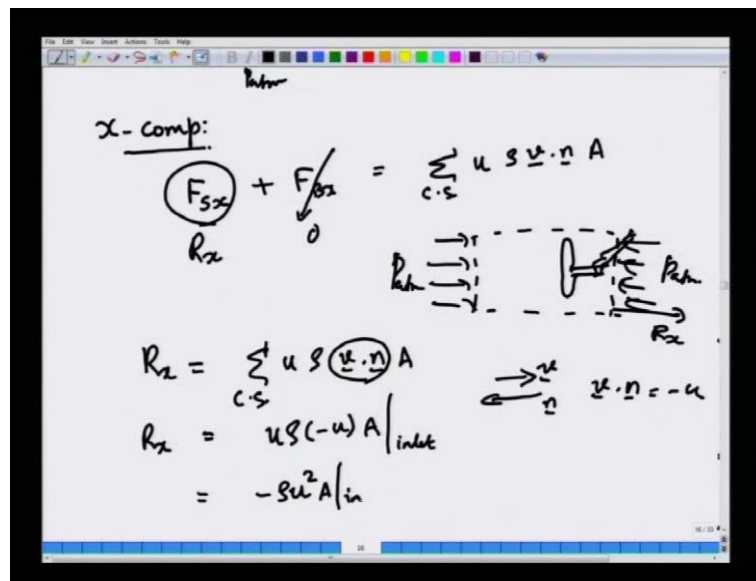 File Edit View Insert Actions Tools Help
Patm
x-comp:
F_Sx + F_Bx = Σ_C.S u ρ v.n A
R_x 0
Patm Patm
R_x
R_x = Σ_C.S u ρ v.n A
v
n v.n = -u
R_x = uρ(-u) A|inlet
= -ρu²A|in
16
16 / 33